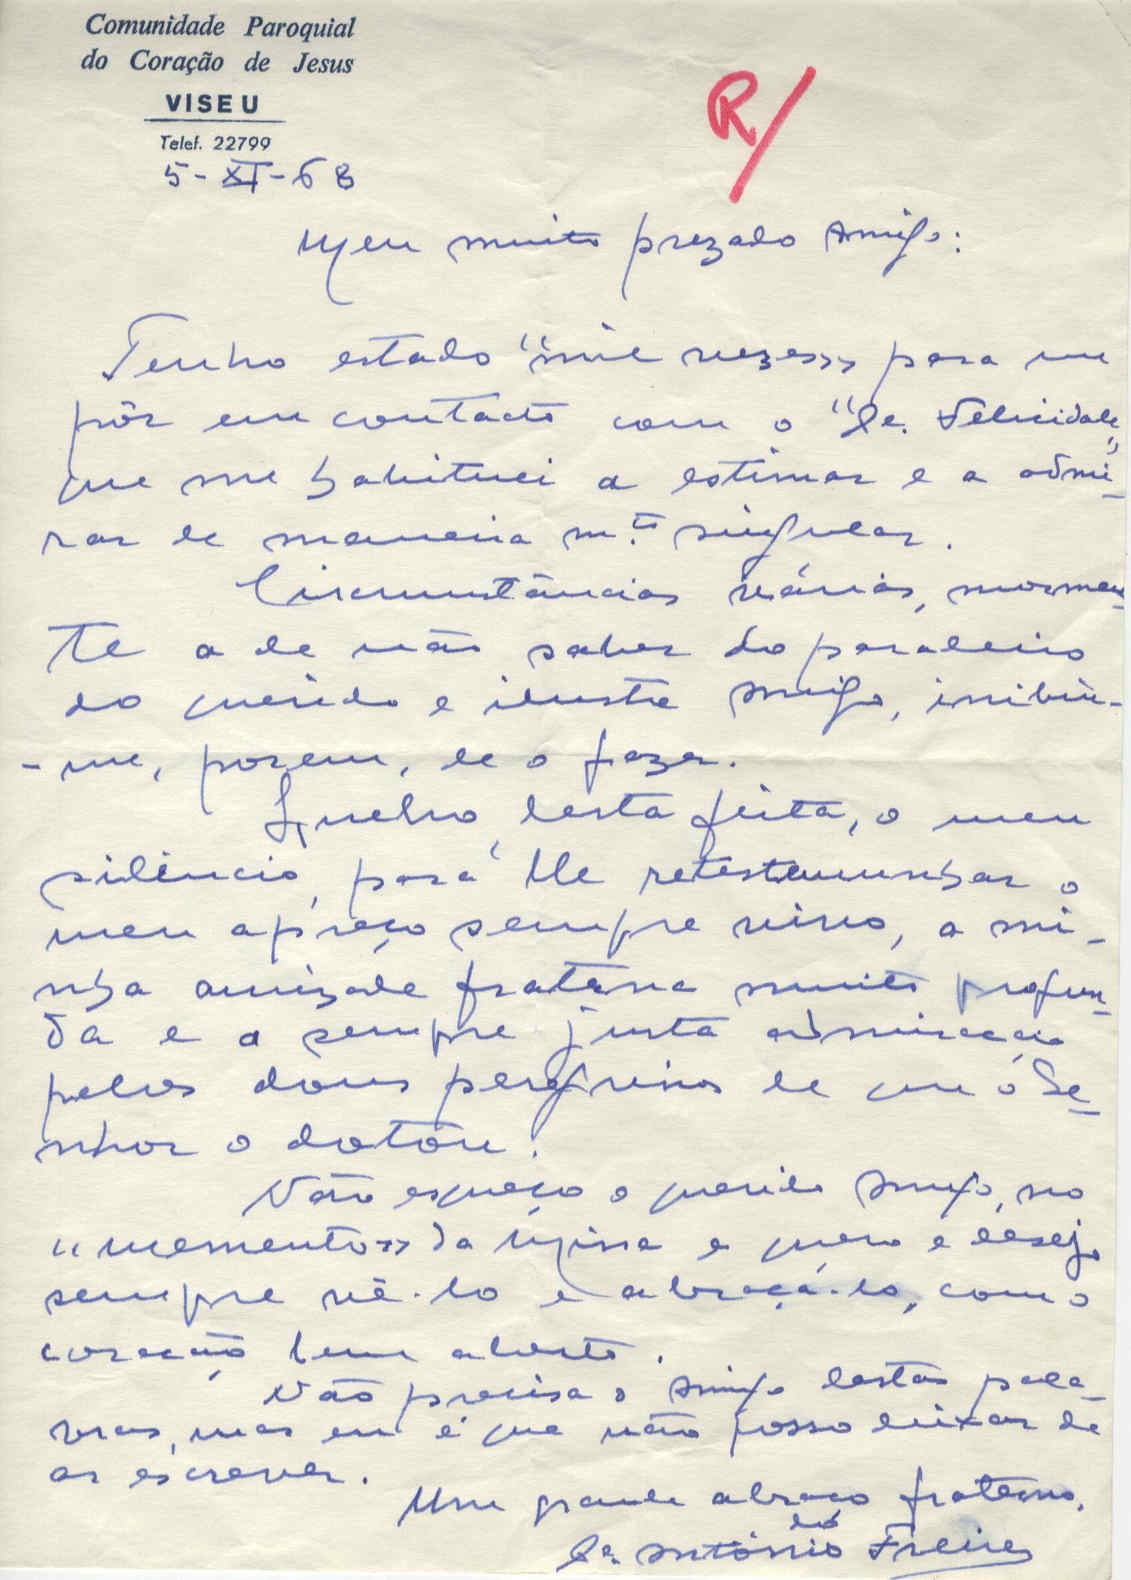 Comunidade Paroquial
do Coração de Jesus
VISEU
Telef. 22799
R/
5-XI-68
Meu muito prezado Amigo:
Tenho estado "mil vezes" para me
pôr em contacto com o "Pe. Felicidade"
que me habituei a estimar e a admi-
rar de maneira m.to singular.
Circunstâncias várias, mormen-
te a de não saber do paradeiro
do querido e ilustre Amigo, inibiu-
-me, porem, de o fazer.
Quebro, desta feita, o meu
silêncio, para lhe retestemunhar o
meu apreço sempre vivo, a mi-
nha amizade fraterna muito profun-
da e a sempre justa admiração
pelos dons peregrinos de que o Se-
nhor o dotou.
Não esqueço o querido Amigo, no
"memento" da Missa e quero e desejo
sempre vê-lo e abraçá-lo, com o
coração bem aberto.
Não precisa o Amigo destas pala-
vras, mas eu é que não posso deixar de
as escrever.
Um grande abraço fraterno,
do
Pe. António Freire